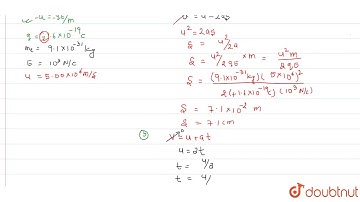 q = 1.6×10⁻¹⁹c
mₑ = 9.1×10⁻³¹kg
E = 10³ N/c
u = 5.00×10⁶m/s
u² = 2as
S = u²/2a
S = u²/2qE × m = u²m/2qE
S = (9.1×10⁻³¹kg)(5×10⁶)²/2(1.6×10⁻¹⁹C)(10³N/C)
S = 7.1×10⁻² m
S = 7.1cm
② v=u+at
u=at
t = u/a
t = u/
doubtnut